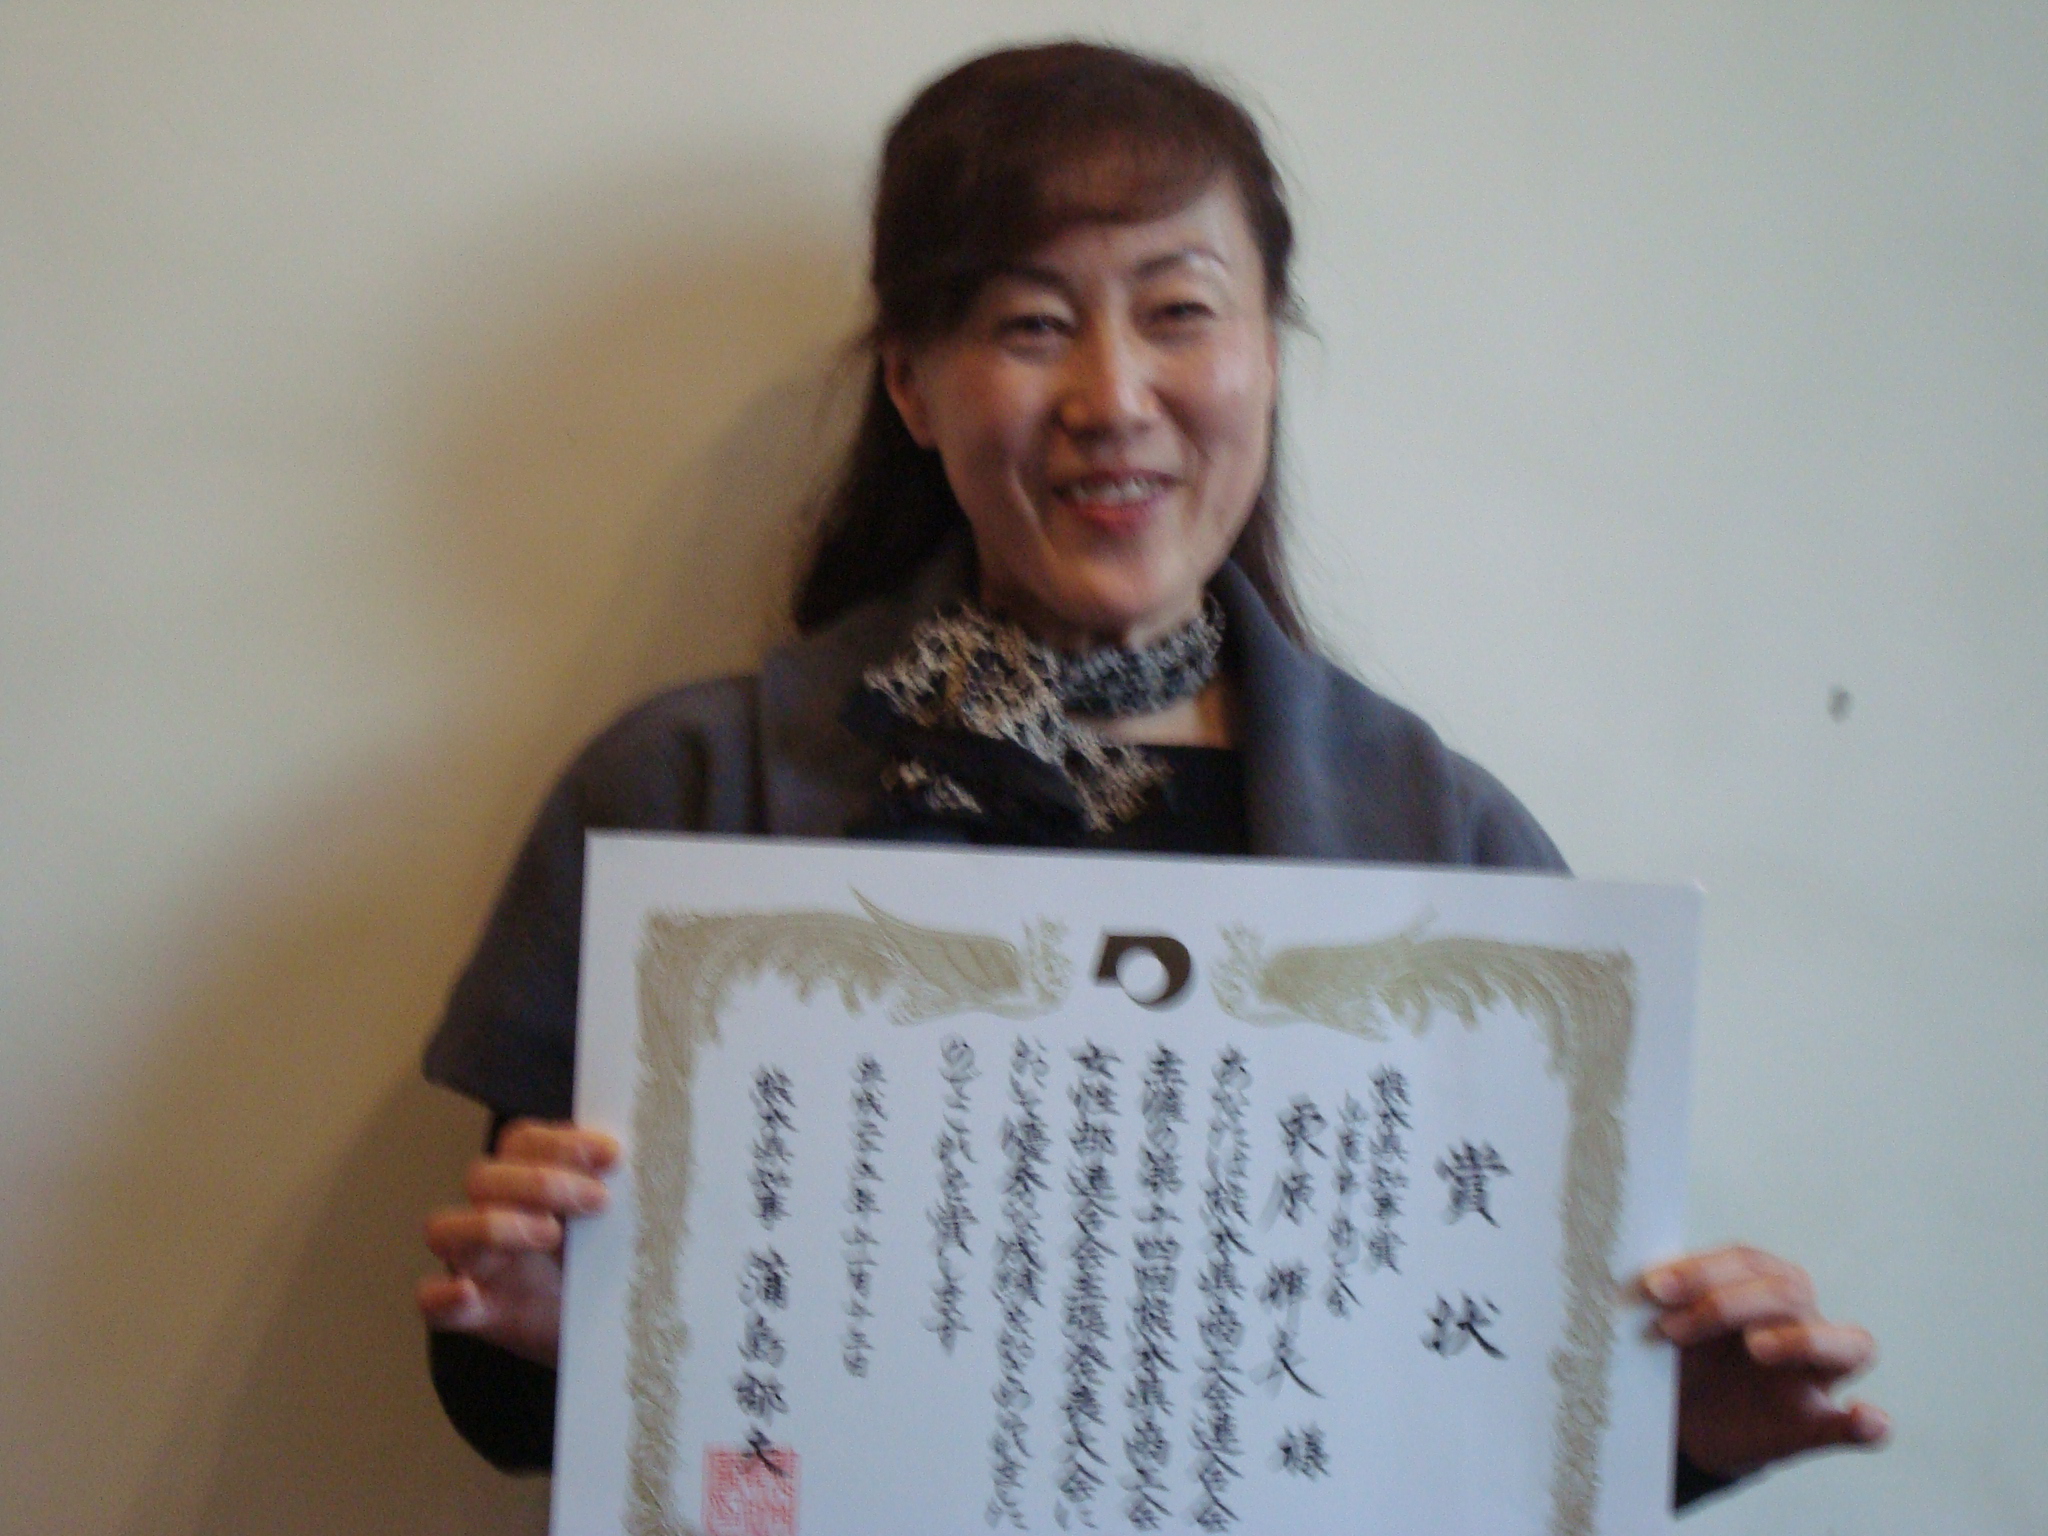 賞状
熊本県知事賞
商工会
様
あなたは熊本県商工会連合会
主催の第十四回熊本県商工会
女性部連合会主張発表大会に
おいて優秀な成績をおさめられました
のでこれを賞します
平成二十
熊本県知事 蒲島郁夫